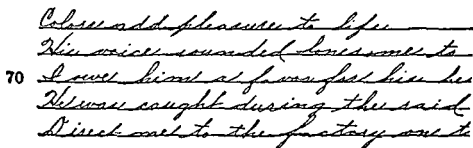 Colors add pleasure to life
His voice sounded lonesome to
70 I owe him a favor for his
He was caught during the raid
Direct me to the factory one t